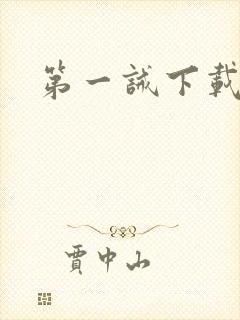 第一誡下載
賈中山